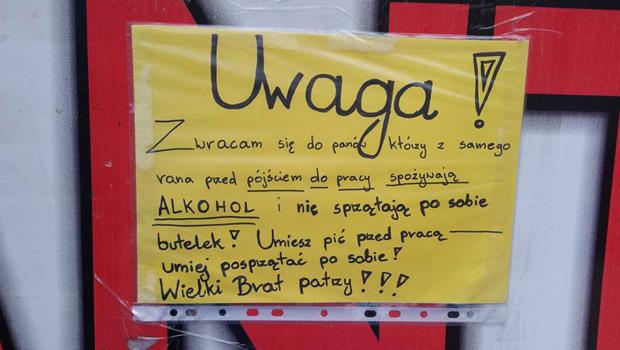 Uwaga!
Zwracam się do panów którzy z samego
rana przed pójściem do pracy spożywają
ALKOHOL i nie sprzątają po sobie
butelek! Umiesz pić przed pracą —
umiej posprzątać po sobie!
Wielki Brat patrzy!!!